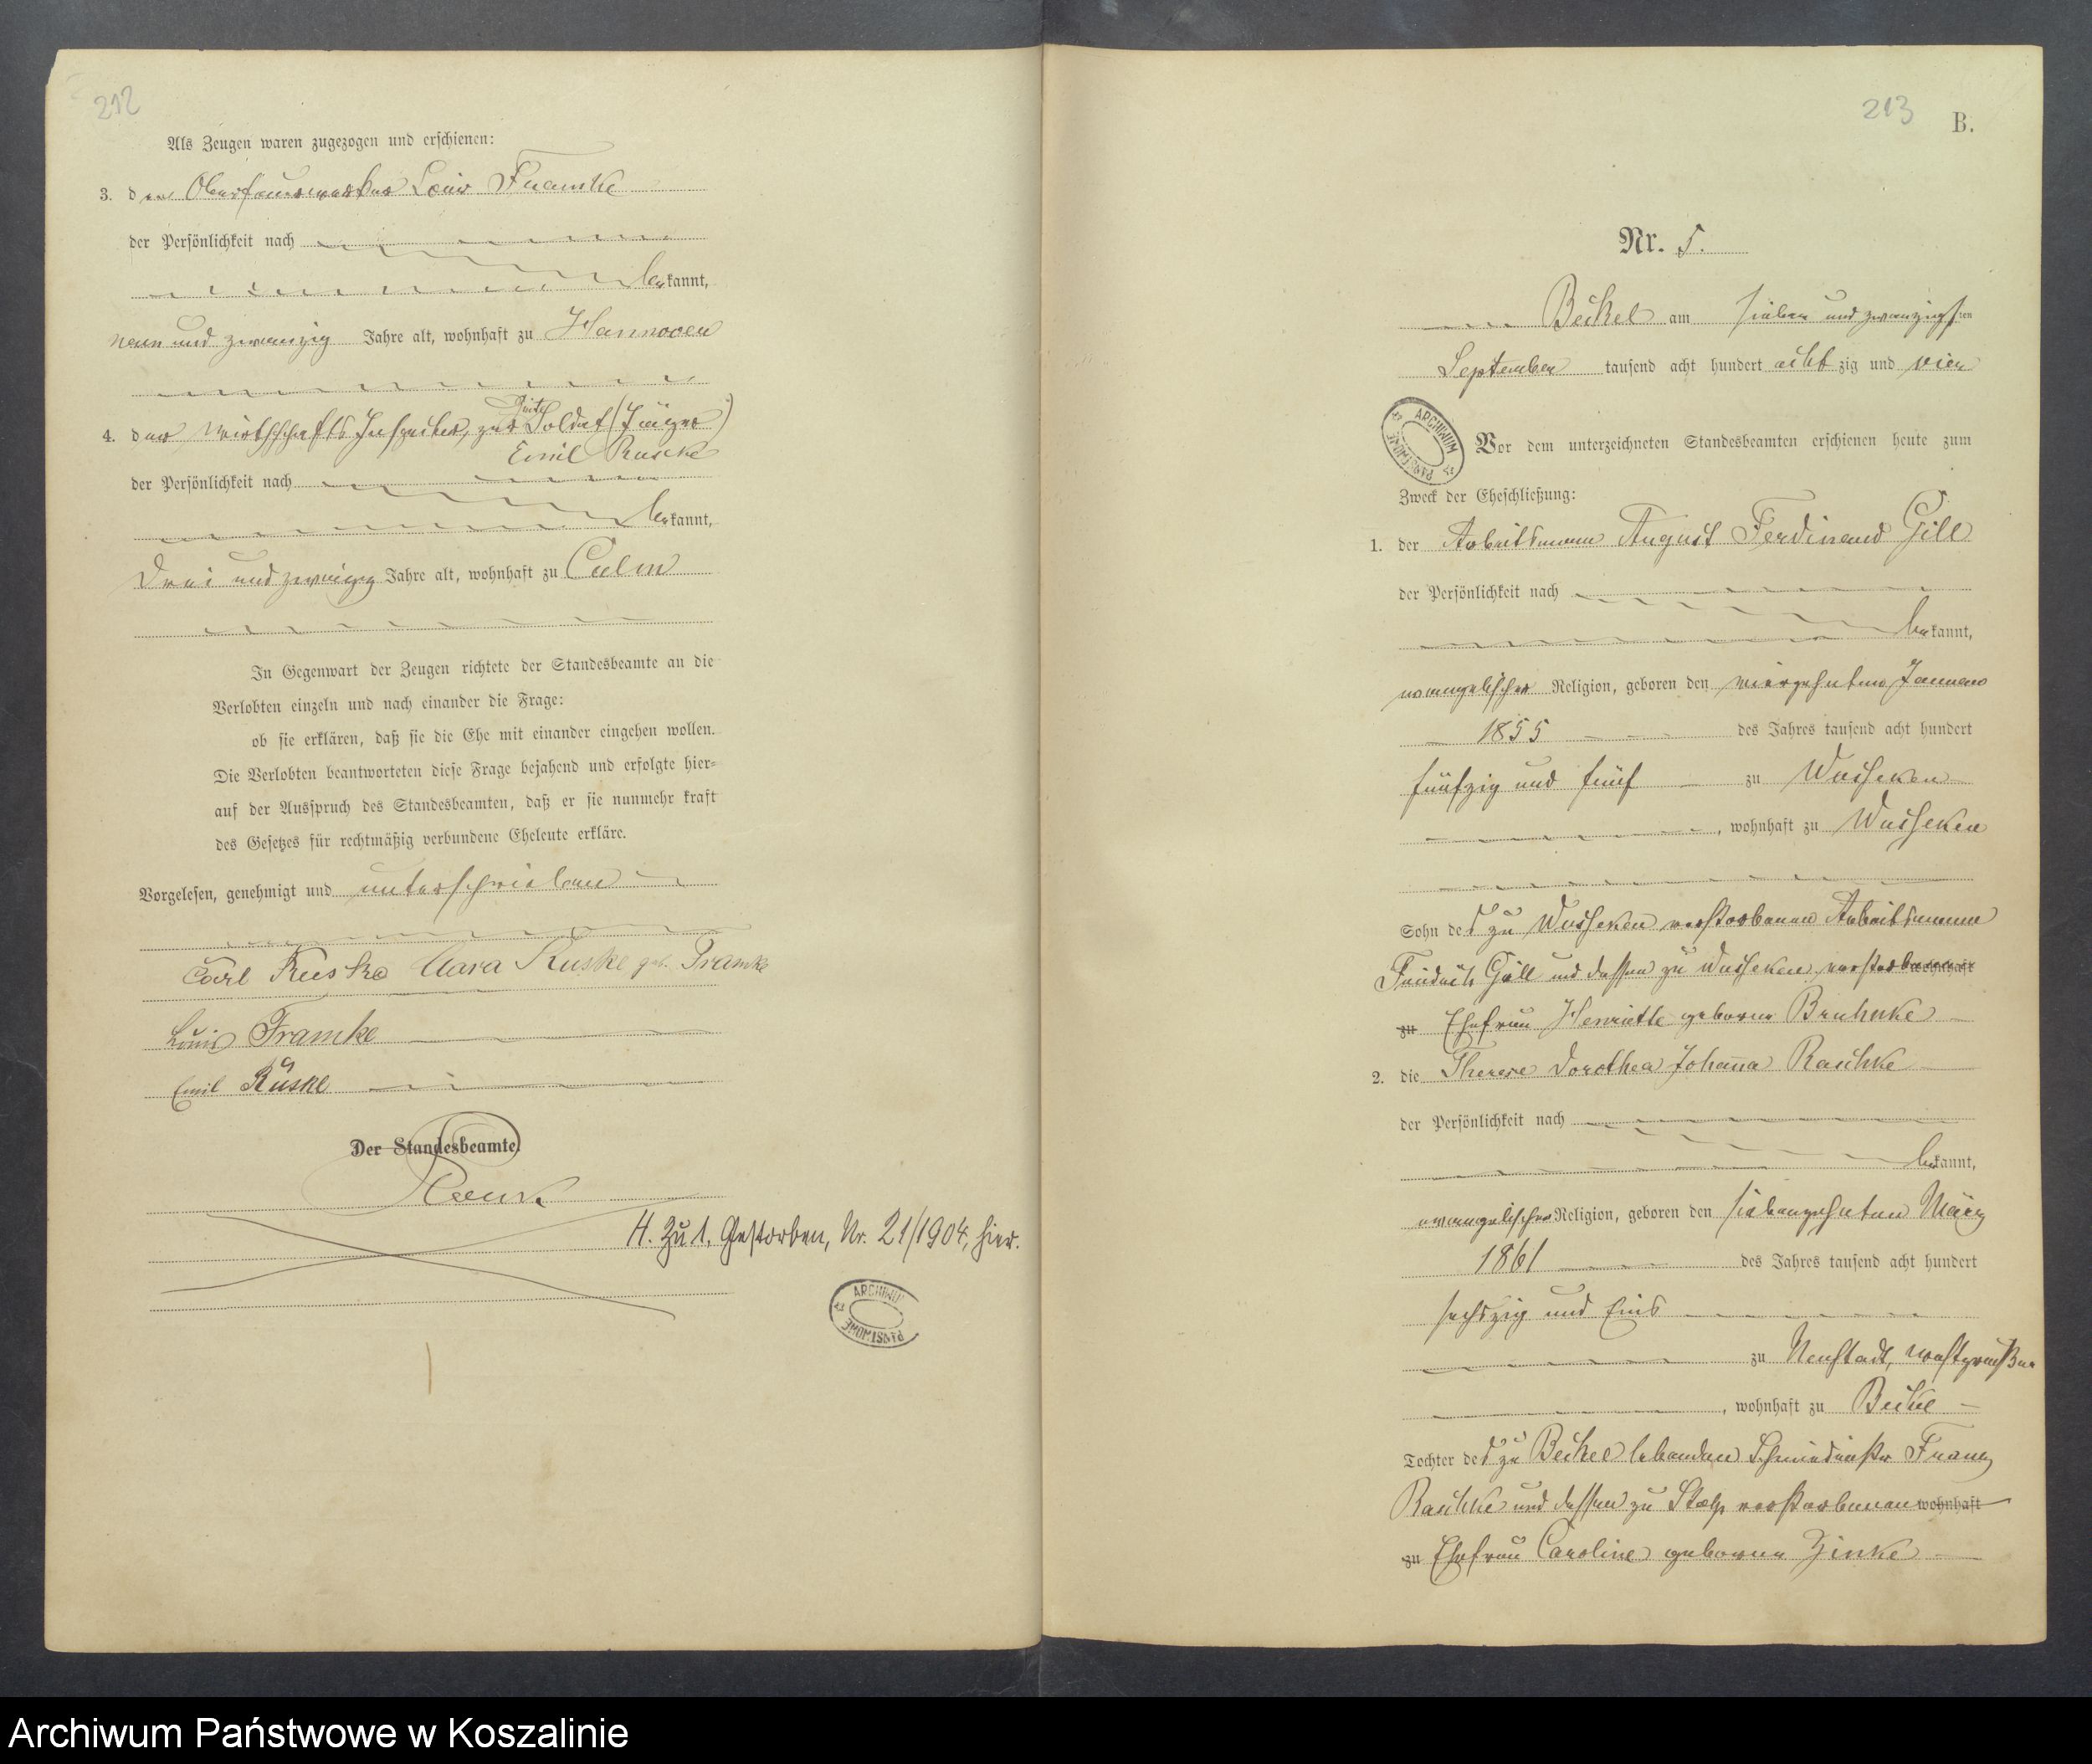 212
Als Zeugen waren zugezogen und erschienen:
3. der Louis Framke
der Persönlichkeit nach
bekannt,
neun und zwanzig Jahre alt, wohnhaft zu Hannover
4. der Wirthschafts Inspector, zur Zeit Soldat (Jäger)
Emil Ruske
der Persönlichkeit nach
bekannt,
drei und zwanzig Jahre alt, wohnhaft zu Culm
In Gegenwart der Zeugen richtete der Standesbeamte an die
Verlobten einzeln und nach einander die Frage:
ob sie erklären, daß sie die Ehe mit einander eingehen wollen.
Die Verlobten beantworteten diese Frage bejahend und erfolgte hier=
auf der Ausspruch des Standesbeamten, daß er sie nunmehr kraft
des Gesetzes für rechtmäßig verbundene Eheleute erkläre.
Vorgelesen, genehmigt und unterschrieben
Carl Ruske Clara Ruske geb. Framke
Louis Framke
Emil Ruske
Der Standesbeamte.
H. Zu 1. Gestorben, Nr. 21/1904, hier.
ARCHIWUM PAŃSTWOWE
213
B.
Nr. 5.
Beckel am sieben und zwanzigsten
September tausend acht hundert achtzig und vier
ARCHIWUM PAŃSTWOWE
Vor dem unterzeichneten Standesbeamten erschienen heute zum
Zweck der Eheschließung:
1. der Arbeitsmann August Ferdinand Gill
der Persönlichkeit nach
bekannt,
evangelischer Religion, geboren den vierzehnten Januar
1855 des Jahres tausend acht hundert
fünfzig und fünf zu Wusseken
, wohnhaft zu Wusseken
Sohn des zu Wusseken verstorbenen Arbeitsmann
Friedrich Gill und dessen zu Wusseken verstorbenen wohnhaft
zu Ehefrau Henriette geborne Bruhnke
2. die Therese Dorothea Johanna Raschke
der Persönlichkeit nach
bekannt,
evangelischer Religion, geboren den siebenzehnten März
1861 des Jahres tausend acht hundert
sechszig und Eins
zu Neustadt, Westpreußen
, wohnhaft zu Beckel
Tochter des zu Beckel lebenden Franz
Raschke und dessen zu Stolp verstorbenen wohnhaft
zu Ehefrau Caroline geborne Zinke
Archiwum Państwowe w Koszalinie